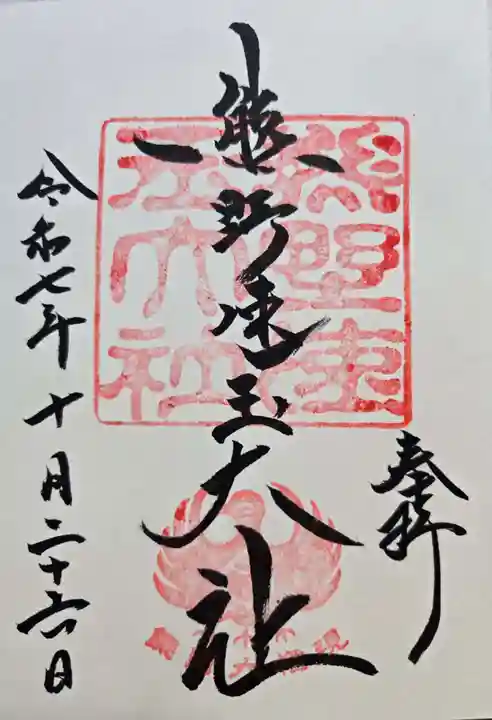 奉拝
熊野速玉大社
熊野速玉大社
令和七年十月二十六日